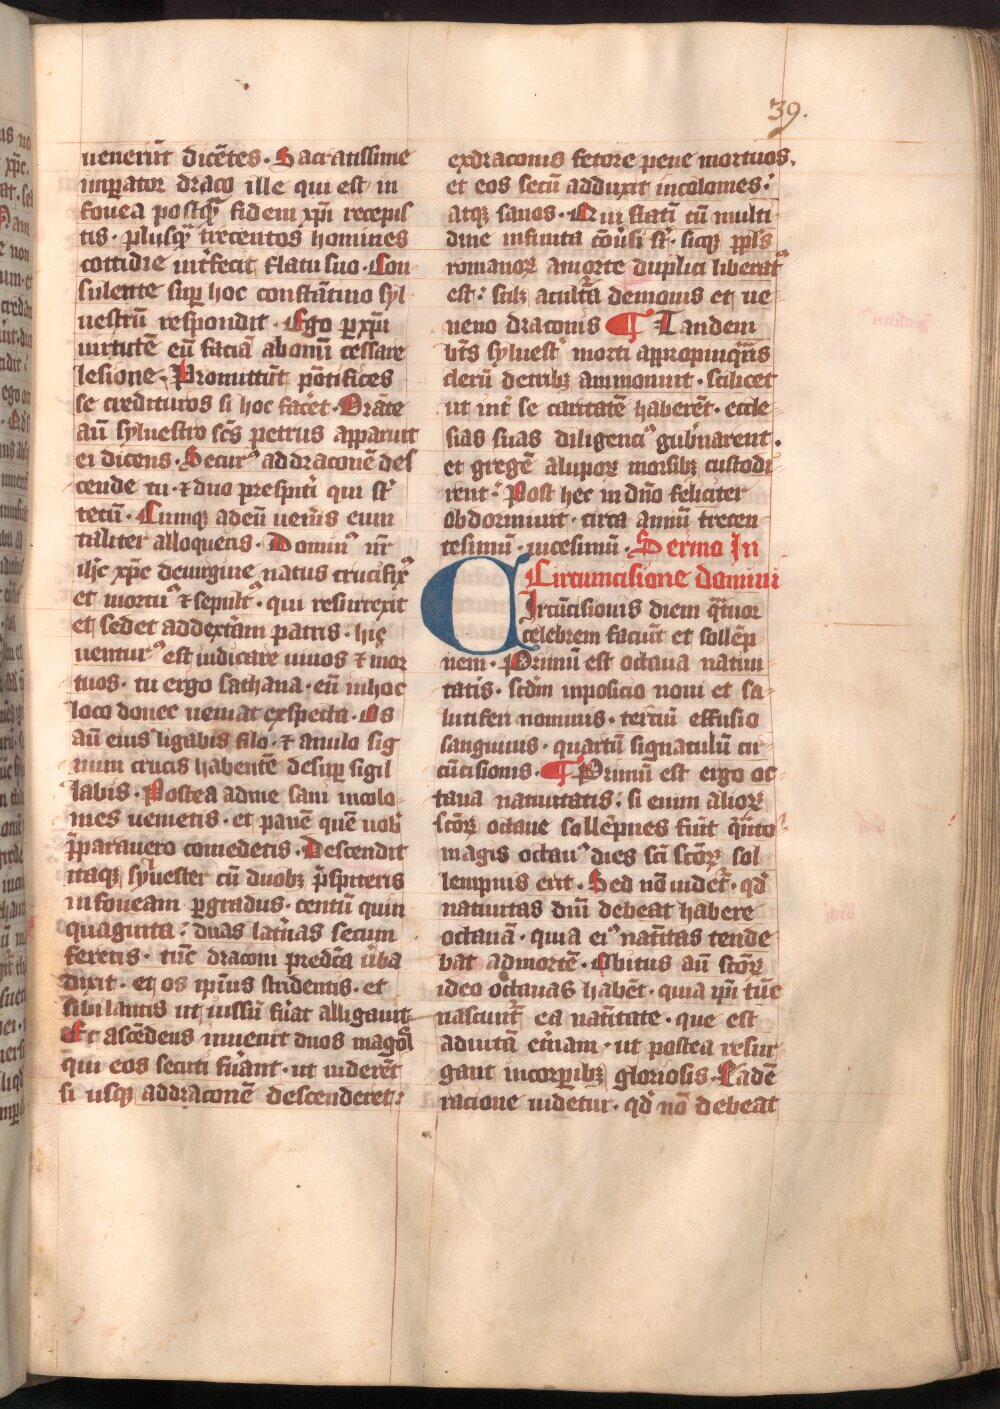 39.
uenerūt dicētes · Sacratissime
imꝑator draco ille qui est in
fouea postqᷓ fidem xp̄i recepis
tis · plusqᷓ trecentos homines
cottidie int̓fecit flatu suo · Con
sulente suꝑ hoc constātino syl
uestrū respondit · Ego ꝑ xp̄i
uirtutē eū faciā ab om̄i cessare
lesione · Promittūt pōtifices
se credituros si hoc fac̓et · Orāte
aū syluestro sc̄s petrus apparuit
ei dicens · Securꝰ ad draconē des
cende tu · ⁊ duo presp̄iti qui st̄
tecū · Cumqꝫ ad eū uen̓is eum
taliter alloqueris · Dominꝰ nr̄
ih̄c xp̄c de uirgine natus crucifixꝰ
et mortuꝰ ⁊ sepultꝰ · qui resurrexit
et sedet ad dextām patris · hic
uenturꝰ est iudicare uiuos ⁊ mor
tuos · tu ergo sathana · eū in hoc
loco donec ueniat exspecta · Os
aū eius ligabis filo · ⁊ anulo sig
num crucis habentē desuꝑ sigil
labis · Postea ad me sani incolo
mes uenietis · et panē quē uob̄
p̄parauero comedetis · Descendit
itaqꝫ syluester cū duobꝫ p̄sp̄iteris
in foueam ꝑ gradus · centū quin
quaginta · duas lat̓nas secum
ferens · tūc draconi predc̄a u̓ba
dixit · et os ip̄ius stridentis · et
sibilantis ut iussū fu̓at alligauit
Et ascēdens inuenit duos magos
qui eos secuti fu̓ant · ut uiderēt
si usqꝫ ad draconē descenderet ·
ex draconis fetore pene mortuos,
et eos secū adduxit incolomes ·
atqꝫ sanos · Qui statī cū multi
dine infinita cōu̓si st̄ · sicqꝫ ppl̄s
romanoꝝ a morte duplici liberatꝰ
est · scilꝫ a cultᷓa demonis et ue
neno draconis ¶ Tandem
bt̄s syluest̓ morti appropinqᷓns
clerū de tribꝫ ammonuit · scilicet
ut int̓ se caritatē haberēt · eccle
sias suas diligenciꝰ gub̓narent ·
et gregē a lupoꝝ morsibꝫ custodi
rent · Post hec in dn̄o feliciter
obdormiuit · circa annū trecen
tesimū · uicesimū · Sermo In
Circumcisione domini
CIrcūcisionis diem qᷓtuor
celebrem faciūt et sollēp
nem · Primū est octaua natiui
tatis · scd̄m inposicio noui et sa
lutiferi nominis · terciū effusio
sanguinis · quartū signaculū cir
cūcisionis · ¶ Primū est ergo oc
taua natiuitatis · si enim alioꝝ
sc̄oꝝ octaue sollēpnes fiūt qᷓnto
magis octauꝰ dies sc̄i sc̄oꝝ sol
lempnis erit · Sed nō uidet̓ · qd̓
natiuitas dn̄i debeat habere
octauā · quia eiꝰ nat̄itas tende
bat ad mortē · Obitus aū sc̄oꝝ
ideo octauas habēt · quia ip̄i tūc
nascunt̓ ea nat̄itate · que est
ad uitā et̓nam · ut postea resur
gant in corꝑibꝫ gloriosis · Eadē
racione uidetur · qd̓ nō debeat